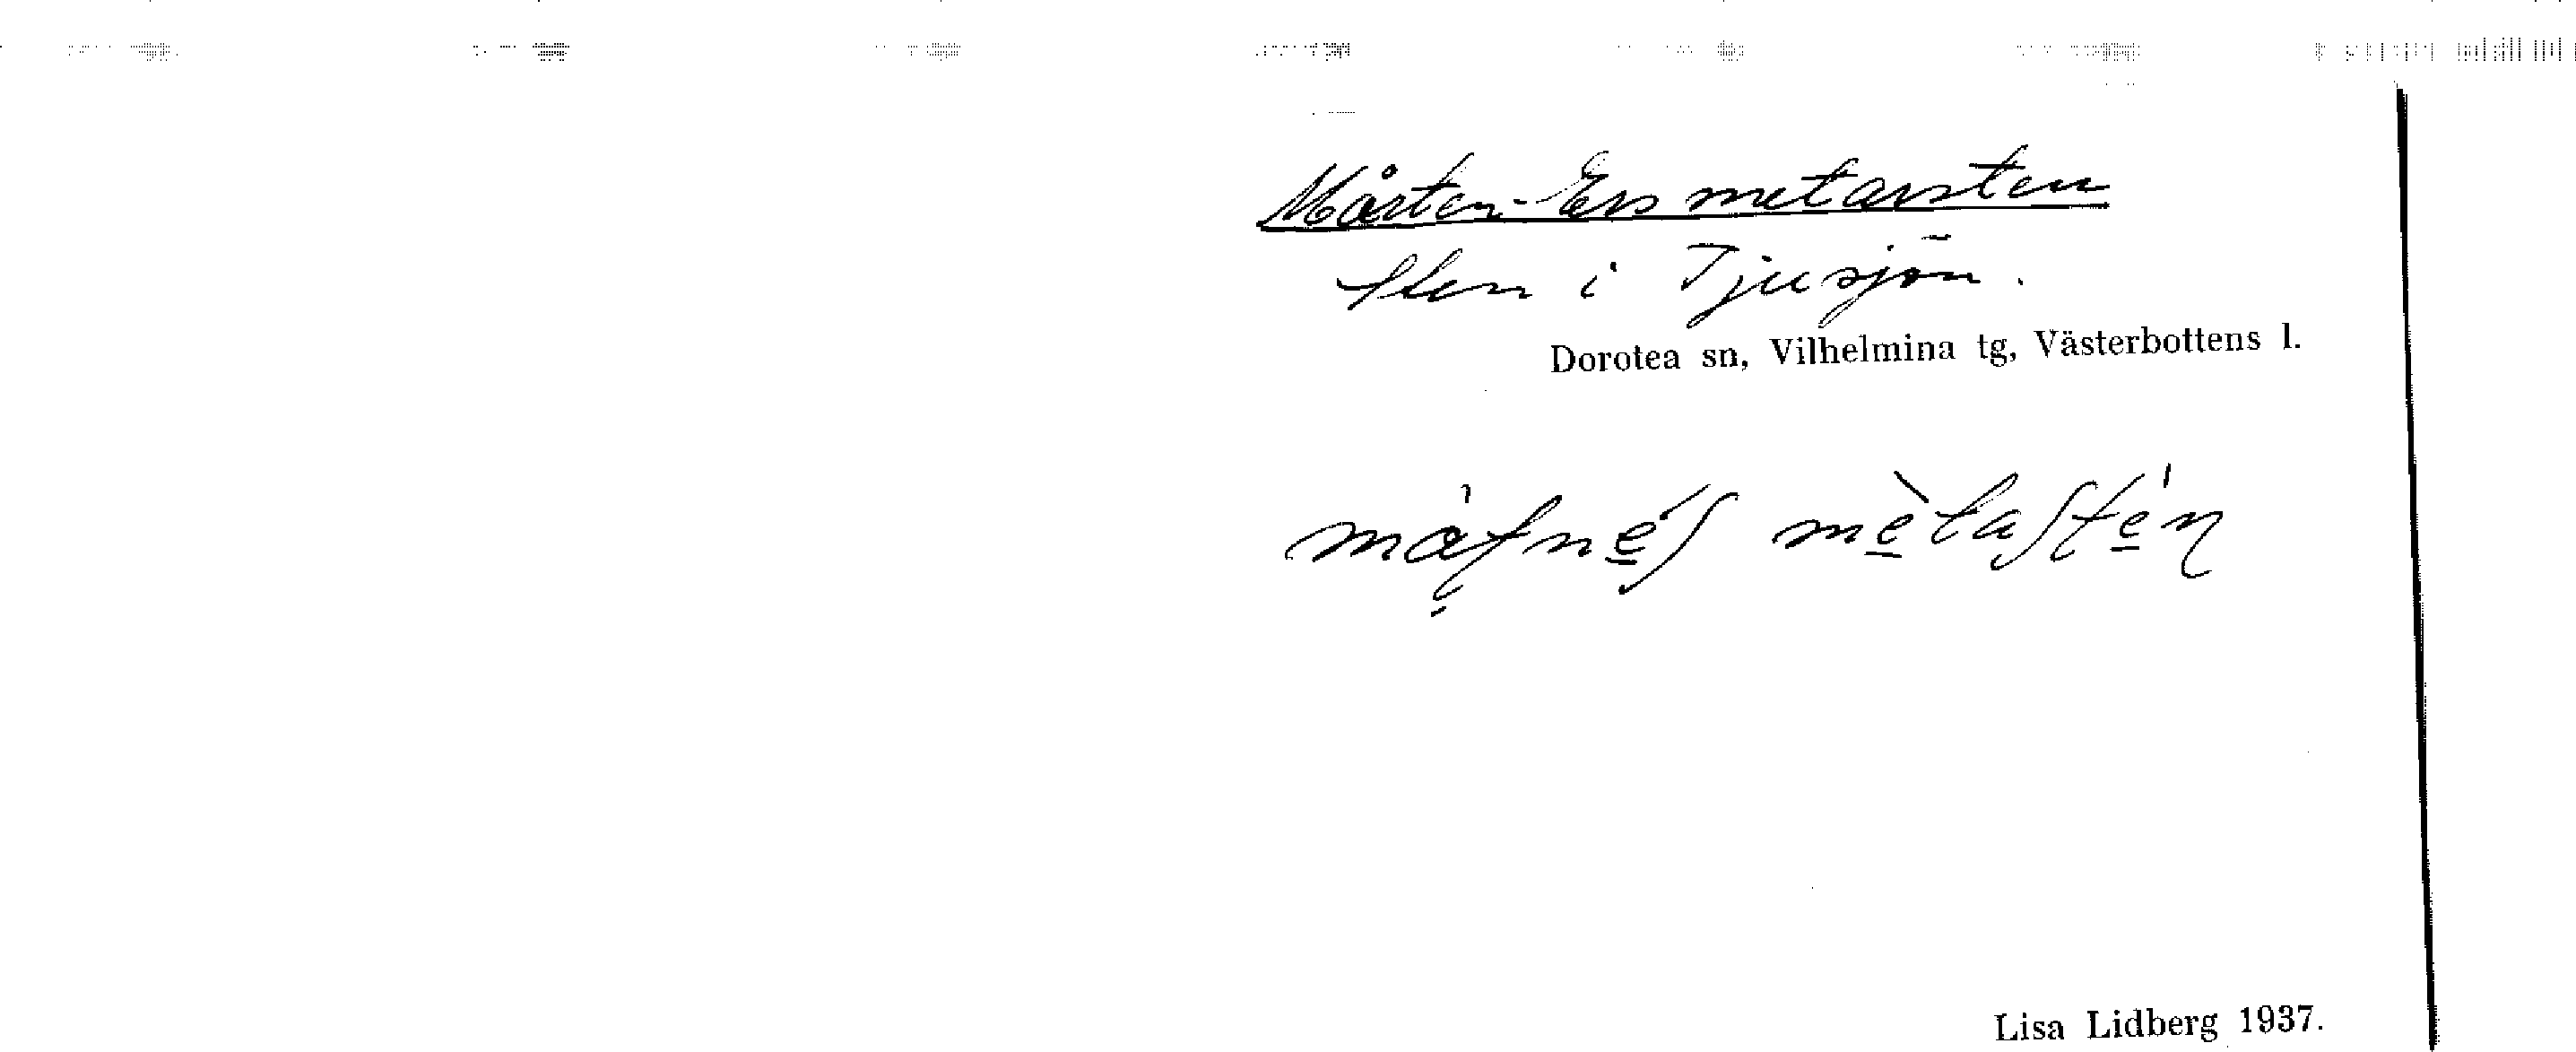 Mårten-Ers metarsten
Sten i Tjusjön.
Dorotea sn, Vilhelmina tg, Västerbottens l.
Lisa Lidberg 1937.